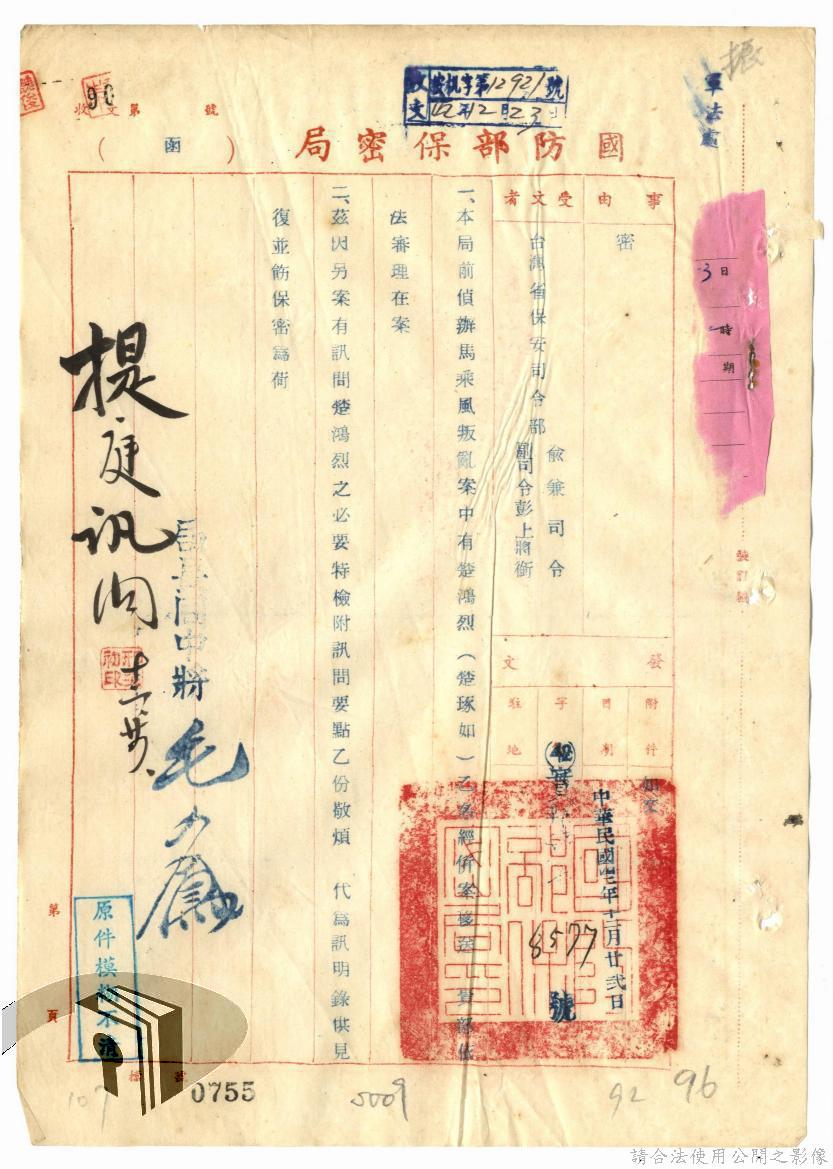 軍法處
振
收文
安机字第12921號
42年12月23日
收文第 號
90
國防部保密局
（函）
事由
密
受文者
台灣省保安司令部
俞兼司令
副司令彭上將銜
發文
附件
如文
日期
中華民國四十二年十二月廿弍日
字
8577
號
駐地
一、本局前偵辦馬乘風叛亂案中有楚鴻烈（楚琢如）乙名經併案移送 貴部依
法審理在案
二、茲因另案有訊問楚鴻烈之必要特檢附訊問要點乙份敬煩 代為訊明錄供見
復並飭保密為荷
中將
毛
提庭訊問
3日
時
期
裝訂線
原件模糊不清
第
頁
0755
107
5009
92
96
請合法使用公開之影像